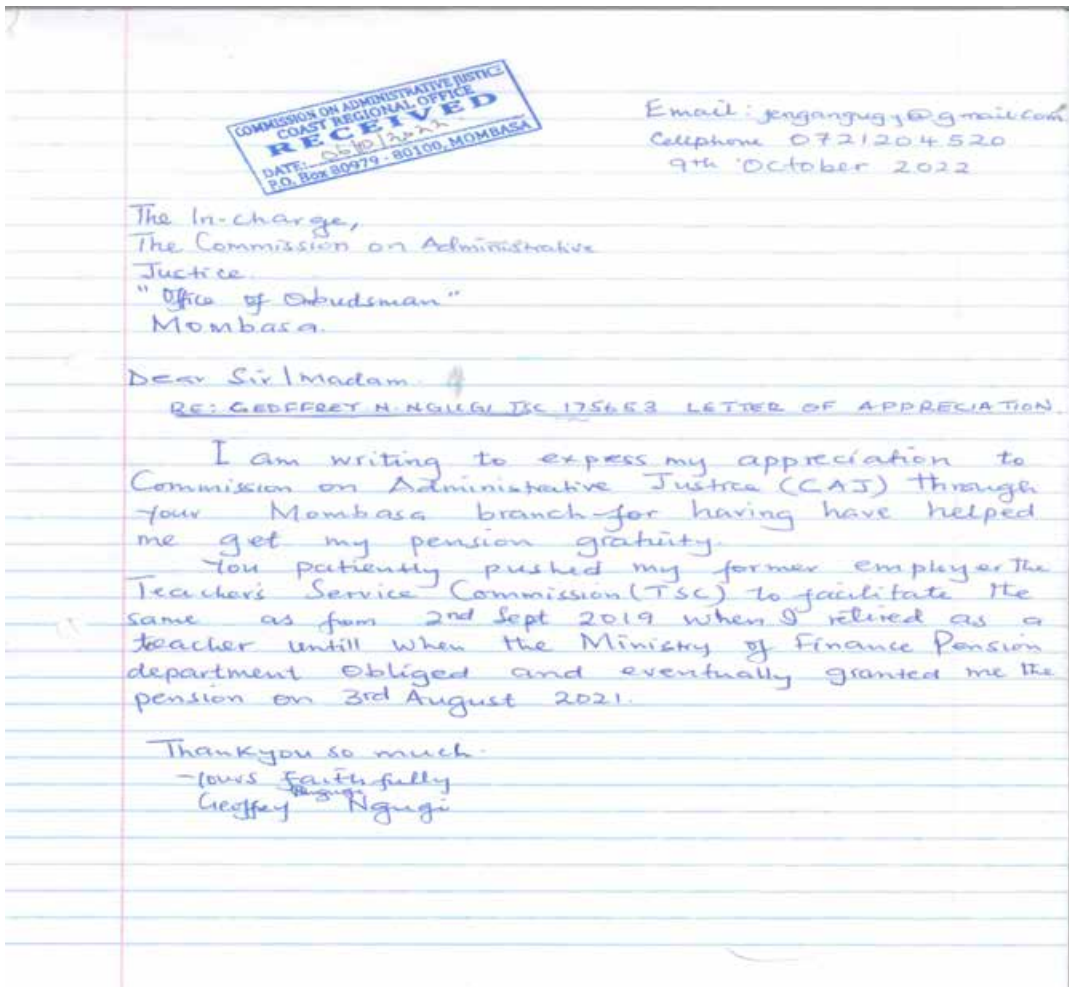 COMMISSION ON ADMINISTRATIVE JUSTICE
COAST REGIONAL OFFICE
RECEIVED
DATE: 06/10/2022
P.O. Box 80979 - 80100, MOMBASA
Email: @gmail.com
Cellphone 0721204520
9th October 2022
The In-charge,
The Commission on Administrative
Justice.
"Office of Ombudsman"
Mombasa.
Dear Sir/Madam.
RE: GEOFFREY N. NGUGI TSC 175653 LETTER OF APPRECIATION
I am writing to expess my appreciation to
Commission on Administrative Justice (CAJ) through
your Mombasa branch for having have helped
me get my pension gratuity.
You patiently pushed my former employer the
Teacher's Service Commission (TSC) to facilitate the
same as from 2nd Sept 2019 when I retired as a
teacher untill when the Ministry of Finance Pension
department obliged and eventually granted me the
pension on 3rd August 2021.
Thankyou so much.
Yours faithfully
Geoffey Ngugi